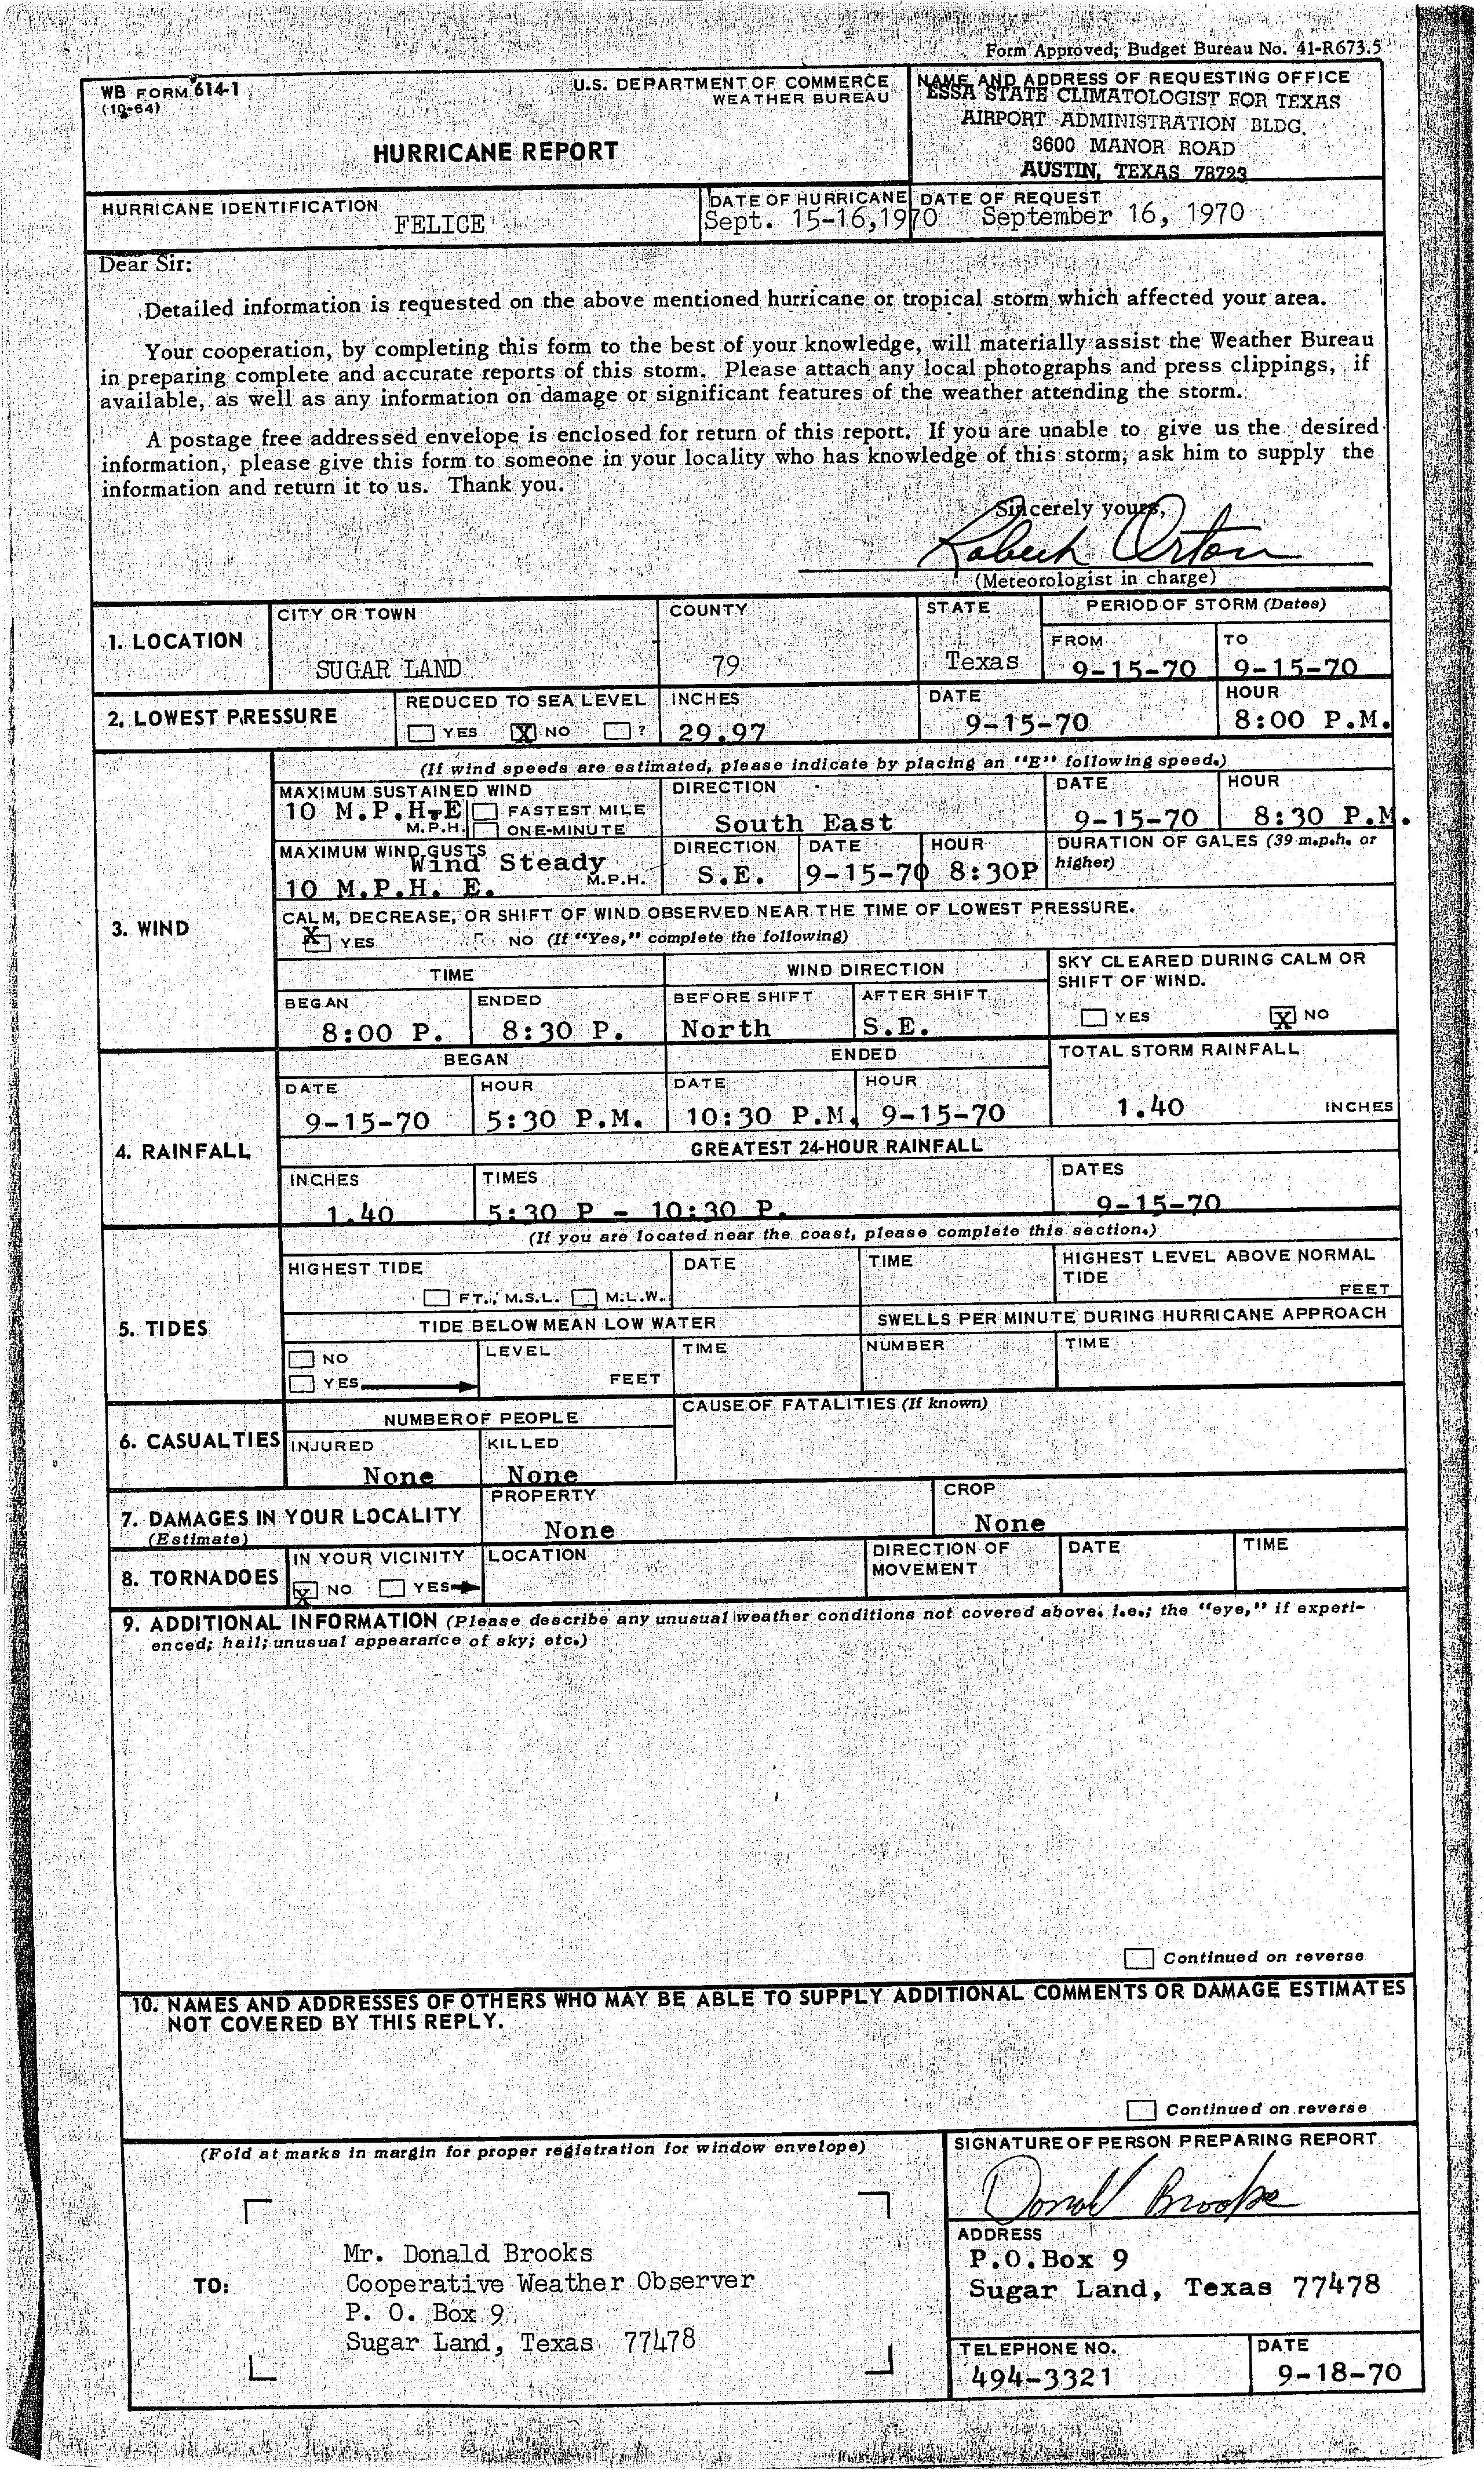 Form Approved; Budget Bureau No. 41-R673.5
WB FORM 614-1
(10-64)
U.S. DEPARTMENT OF COMMERCE
WEATHER BUREAU
HURRICANE REPORT
NAME AND ADDRESS OF REQUESTING OFFICE
ESSA STATE CLIMATOLOGIST FOR TEXAS
AIRPORT ADMINISTRATION BLDG.
3600 MANOR ROAD
AUSTIN, TEXAS 78723
HURRICANE IDENTIFICATION
FELICE
DATE OF HURRICANE
Sept. 15-16,1970
DATE OF REQUEST
September 16, 1970
Dear Sir:
Detailed information is requested on the above mentioned hurricane or tropical storm which affected your area.
Your cooperation, by completing this form to the best of your knowledge, will materially assist the Weather Bureau
in preparing complete and accurate reports of this storm. Please attach any local photographs and press clippings, if
available, as well as any information on damage or significant features of the weather attending the storm.
A postage free addressed envelope is enclosed for return of this report. If you are unable to give us the desired
information, please give this form to someone in your locality who has knowledge of this storm; ask him to supply the
information and return it to us. Thank you.
Sincerely yours,
Robert Orton
(Meteorologist in charge)
1. LOCATION
CITY OR TOWN
SUGAR LAND
COUNTY
79
STATE
Texas
PERIOD OF STORM (Dates)
FROM
9-15-70
TO
9-15-70
2. LOWEST PRESSURE
REDUCED TO SEA LEVEL
YES X NO ?
INCHES
29.97
DATE
9-15-70
HOUR
8:00 P.M.
3. WIND
(If wind speeds are estimated, please indicate by placing an "E" following speed.)
MAXIMUM SUSTAINED WIND
10 M.P.H.E
M.P.H.
FASTEST MILE
ONE-MINUTE
DIRECTION
South East
DATE
9-15-70
HOUR
8:30 P.M.
MAXIMUM WIND GUSTS
Wind Steady
10 M.P.H. E.
M.P.H.
DIRECTION
S.E.
DATE
9-15-70
HOUR
8:30P
DURATION OF GALES (39 m.p.h. or
higher)
CALM, DECREASE, OR SHIFT OF WIND OBSERVED NEAR THE TIME OF LOWEST PRESSURE.
X YES NO (If "Yes," complete the following)
TIME
BEGAN
8:00 P.
ENDED
8:30 P.
WIND DIRECTION
BEFORE SHIFT
North
AFTER SHIFT
S.E.
SKY CLEARED DURING CALM OR
SHIFT OF WIND.
YES X NO
4. RAINFALL
BEGAN
DATE
9-15-70
HOUR
5:30 P.M.
ENDED
DATE
10:30 P.M.
HOUR
9-15-70
TOTAL STORM RAINFALL
1.40 INCHES
GREATEST 24-HOUR RAINFALL
INCHES
1.40
TIMES
5:30 P - 10:30 P.
DATES
9-15-70
5. TIDES
(If you are located near the coast, please complete this section.)
HIGHEST TIDE
FT., M.S.L. M.L.W.
DATE
TIME
HIGHEST LEVEL ABOVE NORMAL
TIDE
FEET
TIDE BELOW MEAN LOW WATER
SWELLS PER MINUTE DURING HURRICANE APPROACH
NO
YES
LEVEL
FEET
TIME
NUMBER
TIME
6. CASUALTIES
NUMBER OF PEOPLE
INJURED
None
KILLED
None
CAUSE OF FATALITIES (If known)
7. DAMAGES IN YOUR LOCALITY
(Estimate)
PROPERTY
None
CROP
None
8. TORNADOES
IN YOUR VICINITY
X NO YES
LOCATION
DIRECTION OF
MOVEMENT
DATE
TIME
9. ADDITIONAL INFORMATION (Please describe any unusual weather conditions not covered above. i.e.; the "eye," if experi-
enced; hail; unusual appearance of sky; etc.)
Continued on reverse
10. NAMES AND ADDRESSES OF OTHERS WHO MAY BE ABLE TO SUPPLY ADDITIONAL COMMENTS OR DAMAGE ESTIMATES
NOT COVERED BY THIS REPLY.
Continued on reverse
(Fold at marks in margin for proper registration for window envelope)
TO:
Mr. Donald Brooks
Cooperative Weather Observer
P. O. Box 9
Sugar Land, Texas 77478
SIGNATURE OF PERSON PREPARING REPORT
Donald Brooks
ADDRESS
P.O.Box 9
Sugar Land, Texas 77478
TELEPHONE NO.
494-3321
DATE
9-18-70